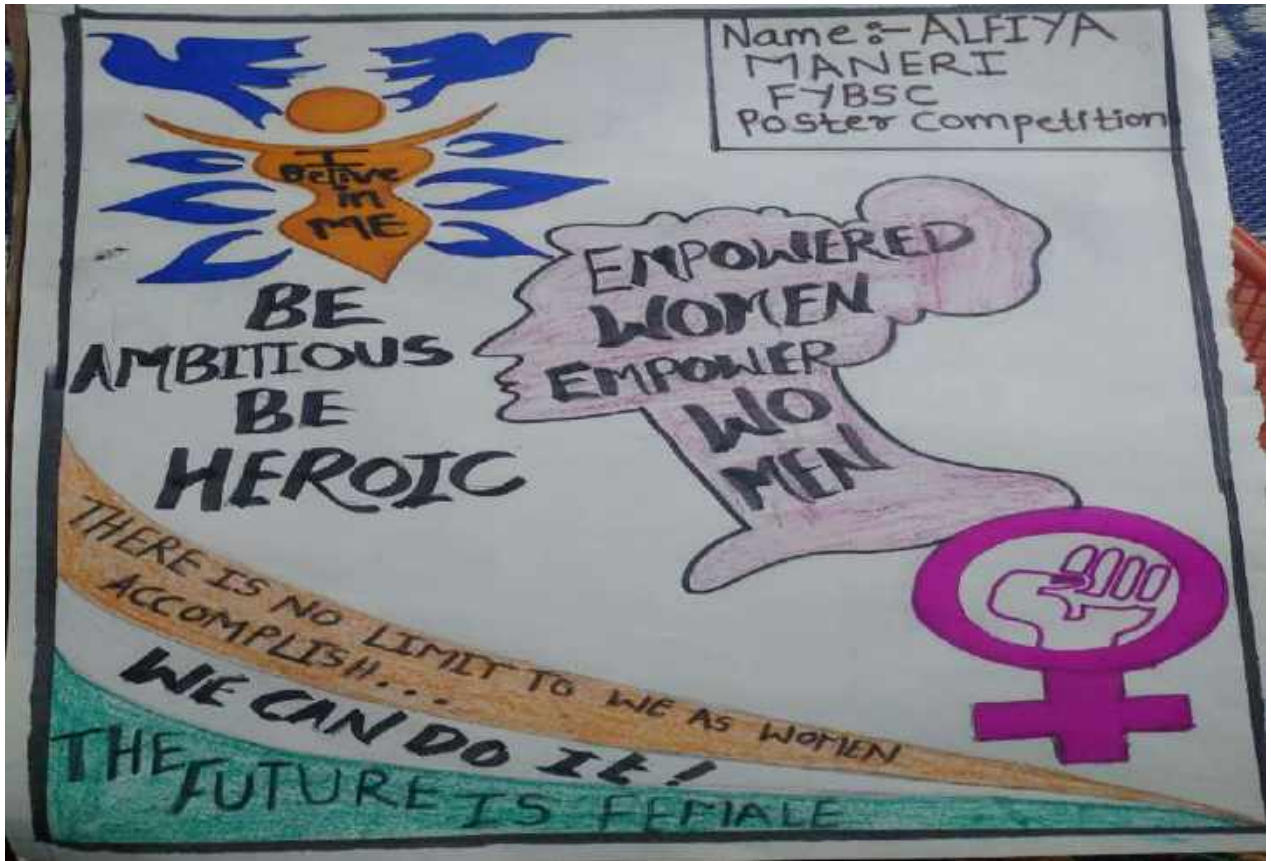 Name:- ALFIYA
MANERI
FYBSC
Poster Competition
I
Belive
in
ME
BE
AMBITIOUS
BE
HEROIC
EMPOWERED
WOMEN
EMPOWER
WO
MEN
THERE IS NO LIMIT TO WE AS WOMEN
ACCOMPLISH...
WE CAN DO It!
THE FUTURE IS FEMALE